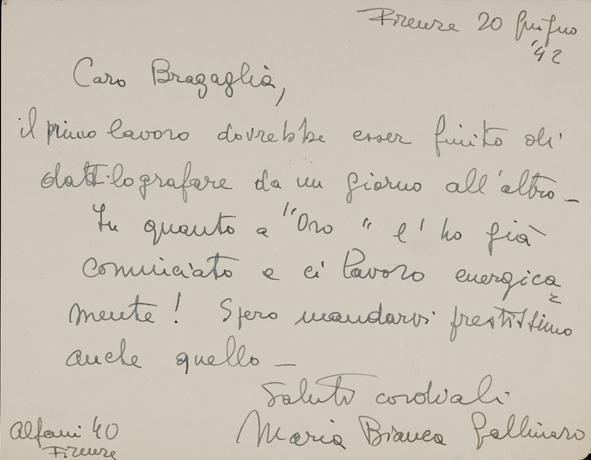 Firenze 20 giugno
'42
Caro Bragaglia,
il primo lavoro dovrebbe esser finito di
dattilografare da un giorno all'altro –
In quanto a "Oro" l'ho già
cominciato e ci lavoro energica
mente! Spero mandarvi prestissimo
anche quello –
Saluti cordiali
Maria Bianca Gallinaro
Alfani 40
Firenze